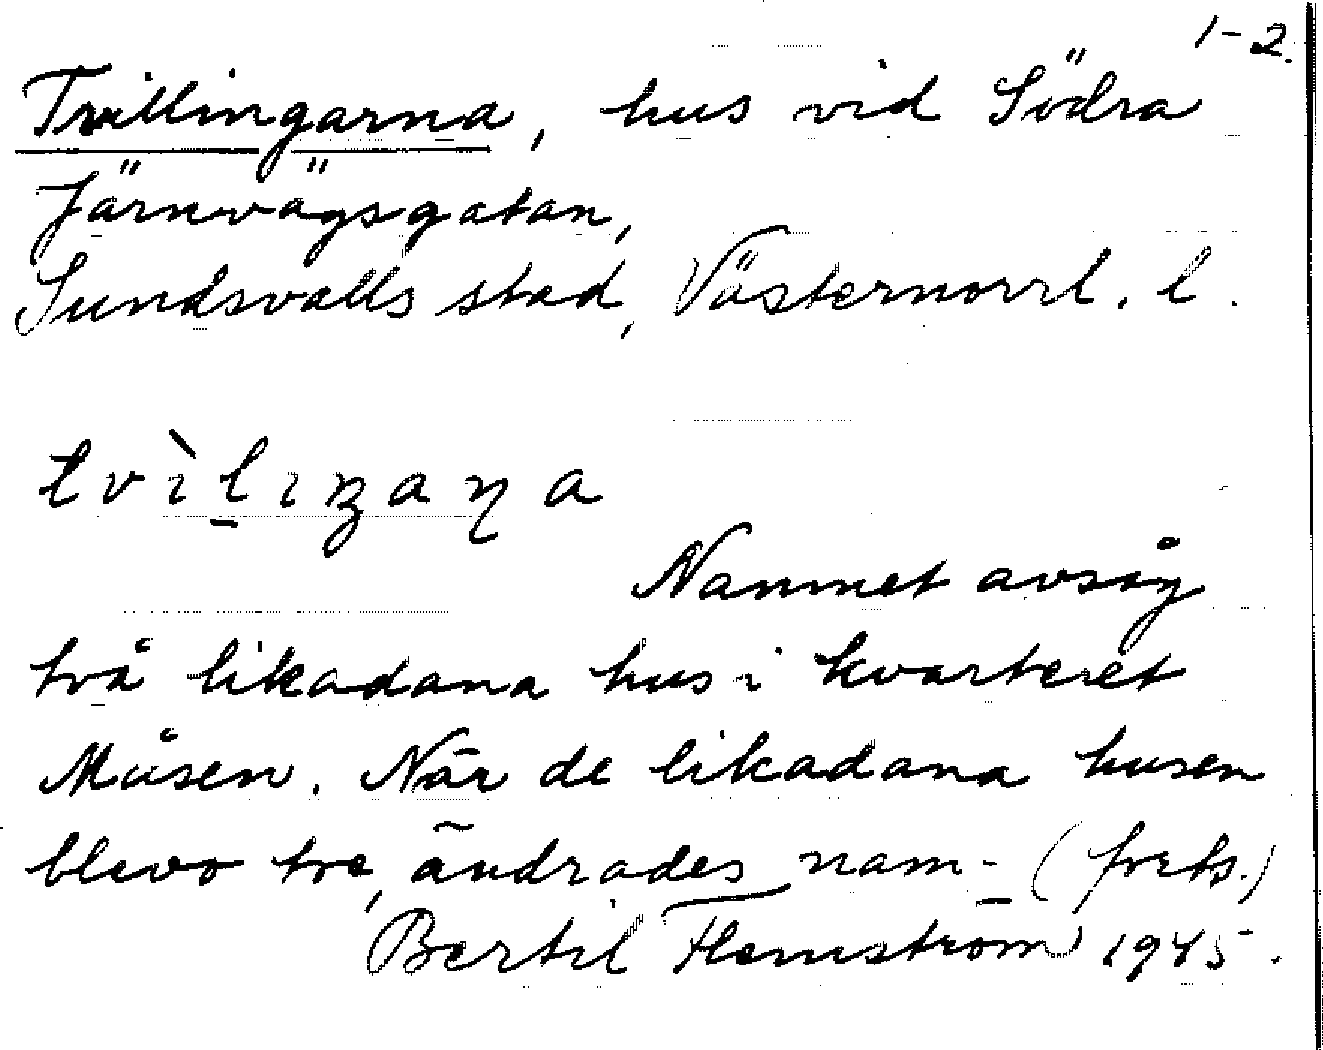 1-2.
Tvillingarna, hus vid Södra
Järnvägsgatan,
Sundsvalls stad, Västernorrl. l.
tvìlıŋaɳa
Namnet avsåg
två likadana hus i kvarteret
Måsen. När de likadana husen
blevo tre, ändrades nam- (forts.)
Bertil Flemström 1945.